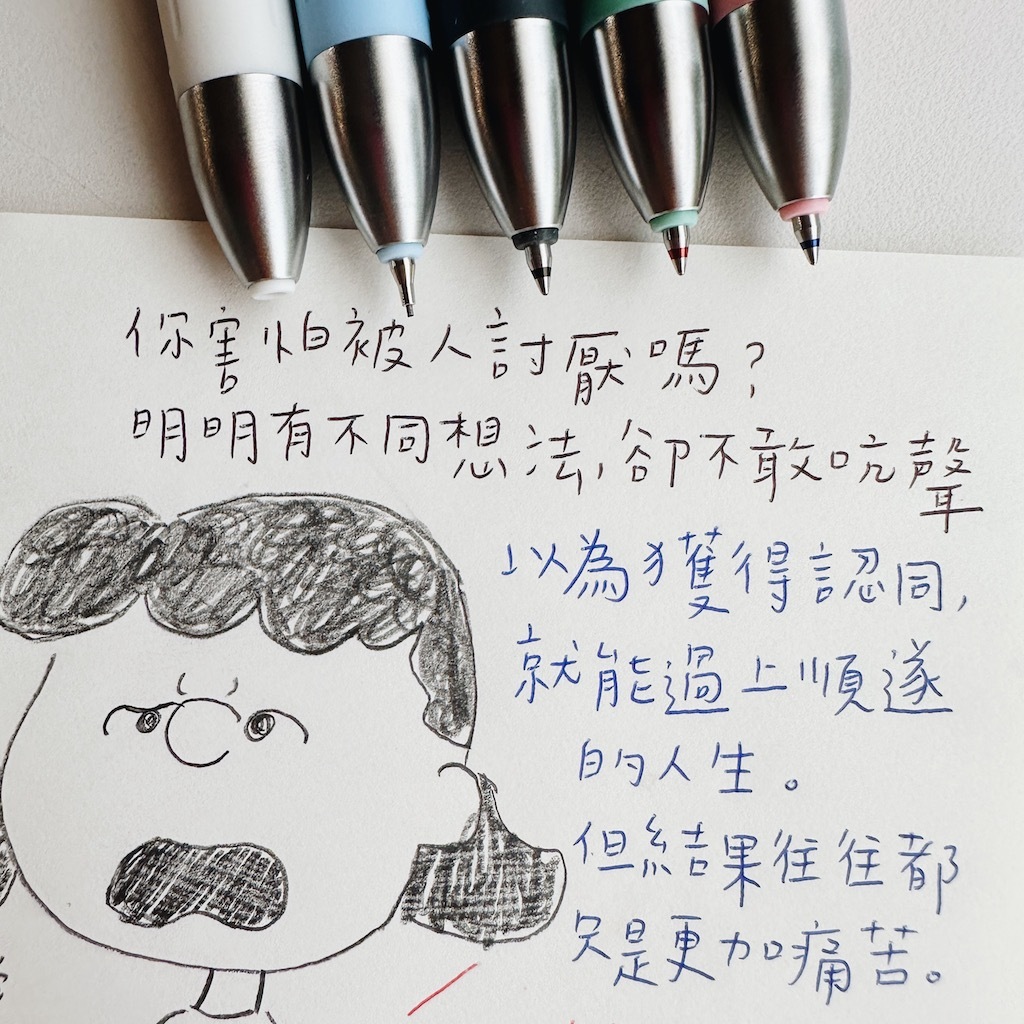 你害怕被人討厭嗎?
明明有不同想法,卻不敢吭聲
以為獲得認同,
就能過上順遂
的人生。
但結果往往都
只是更加痛苦。